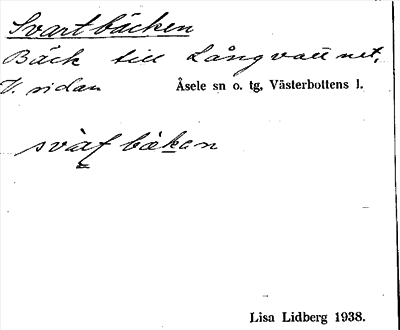 Svartbäcken
Bäck till Långvattnet,
V. sidan Åsele sn o. tg, Västerbottens l.
Lisa Lidberg 1938.